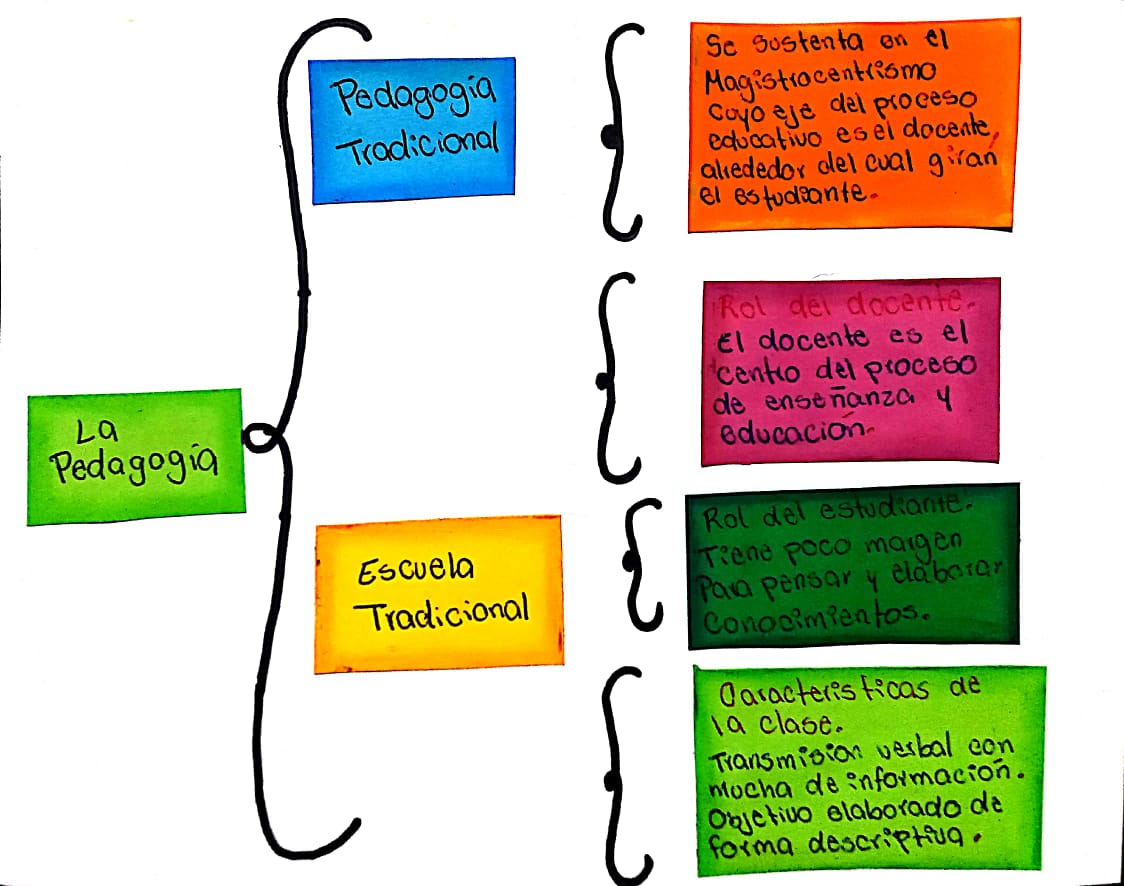 La
Pedagogía
Pedagogía
Tradicional
Se Sustenta en el
Magistrocentrismo
Coyo eje del proceso
educativo es el docente,
alrededor del cual giran
el estudiante.
Rol del docente.
El docente es el
centro del proceso
de enseñanza y
educación.
Escuela
Tradicional
Rol del estudiante.
Tiene poco margen
Para pensar y elaborar
Conocimientos.
Caracteristicas de
la clase.
Transmision verbal con
mucha de información.
Objetivo elaborado de
forma descriptiva.